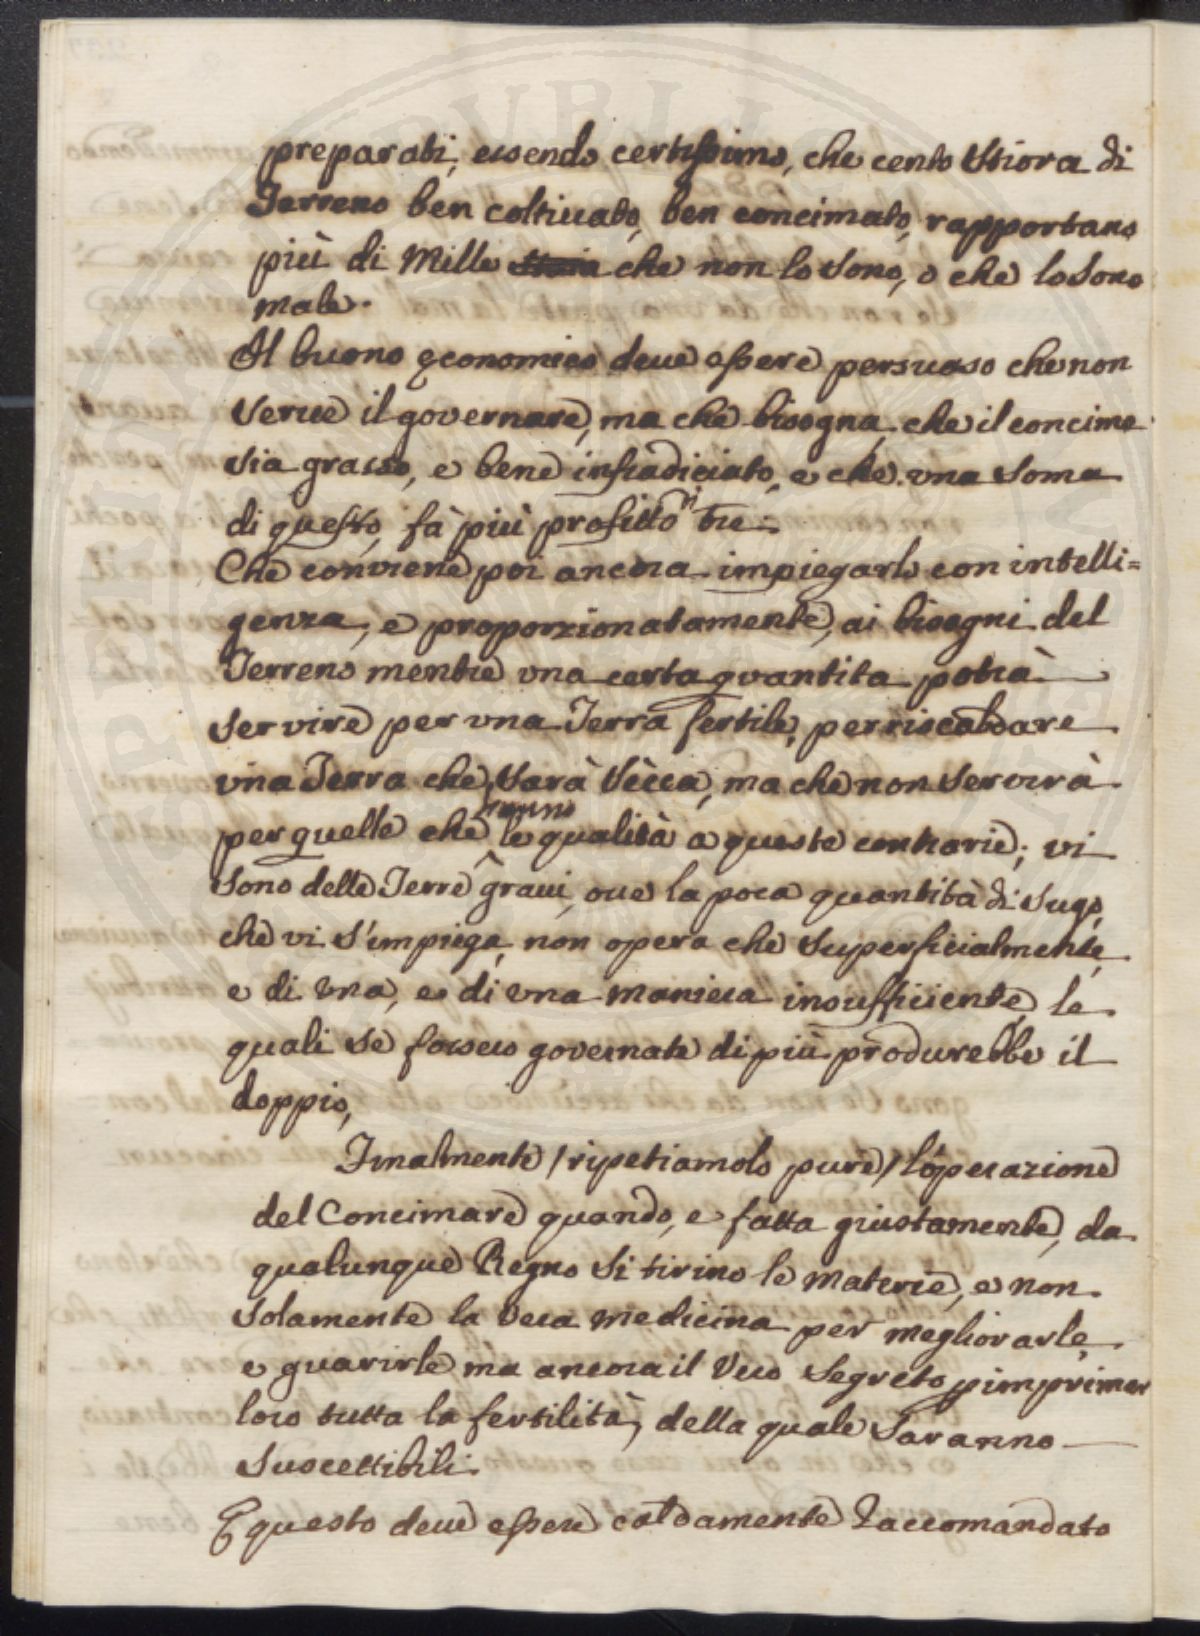 preparati, essendo certissimo, che cento Stiora di
Terreno ben coltivato, ben concimato, rapportano
più di Mille che non lo Sono, o che lo Sono
male.
Al buono economico deve essere persuaso che non
Serve il governare, ma che bisogna che il concime
Sia grasso, e bene infradiciato, e che una Soma
di questo, fà più profitto di tre.
Che conviene poi ancora impiegarlo con intelli=
genza, e proporzionatamente, ai bisogni del
Terreno mentre una certa quantita potrà
Servire per una Terra fertile, per riscaldare
una Terra che Sarà Sècca, ma che non Servirà
per quelle che hanno le qualità a queste contrarie; vi
Sono delle Terre gravi, ove la poca quantità di Sugo,
che vi S'impiega, non opera che Superficialmente,
e di una, e di una maniera insufficiente, le
quali Se fossero governate di più produrebbe il
doppio,
Finalmente /ripetiamolo pure/ l'operazione
del Concimare quando, e fatta giustamente, da
qualunque Regno Si tirino le Materie, e non
Solamente la Vera medicina per megliorarle,
e guarirle ma ancora il Vero Segreto p imprimer
loro tutta la fertilità, della quale Saranno
Suscettibili.
E questo deve essere caldamente Raccomandato